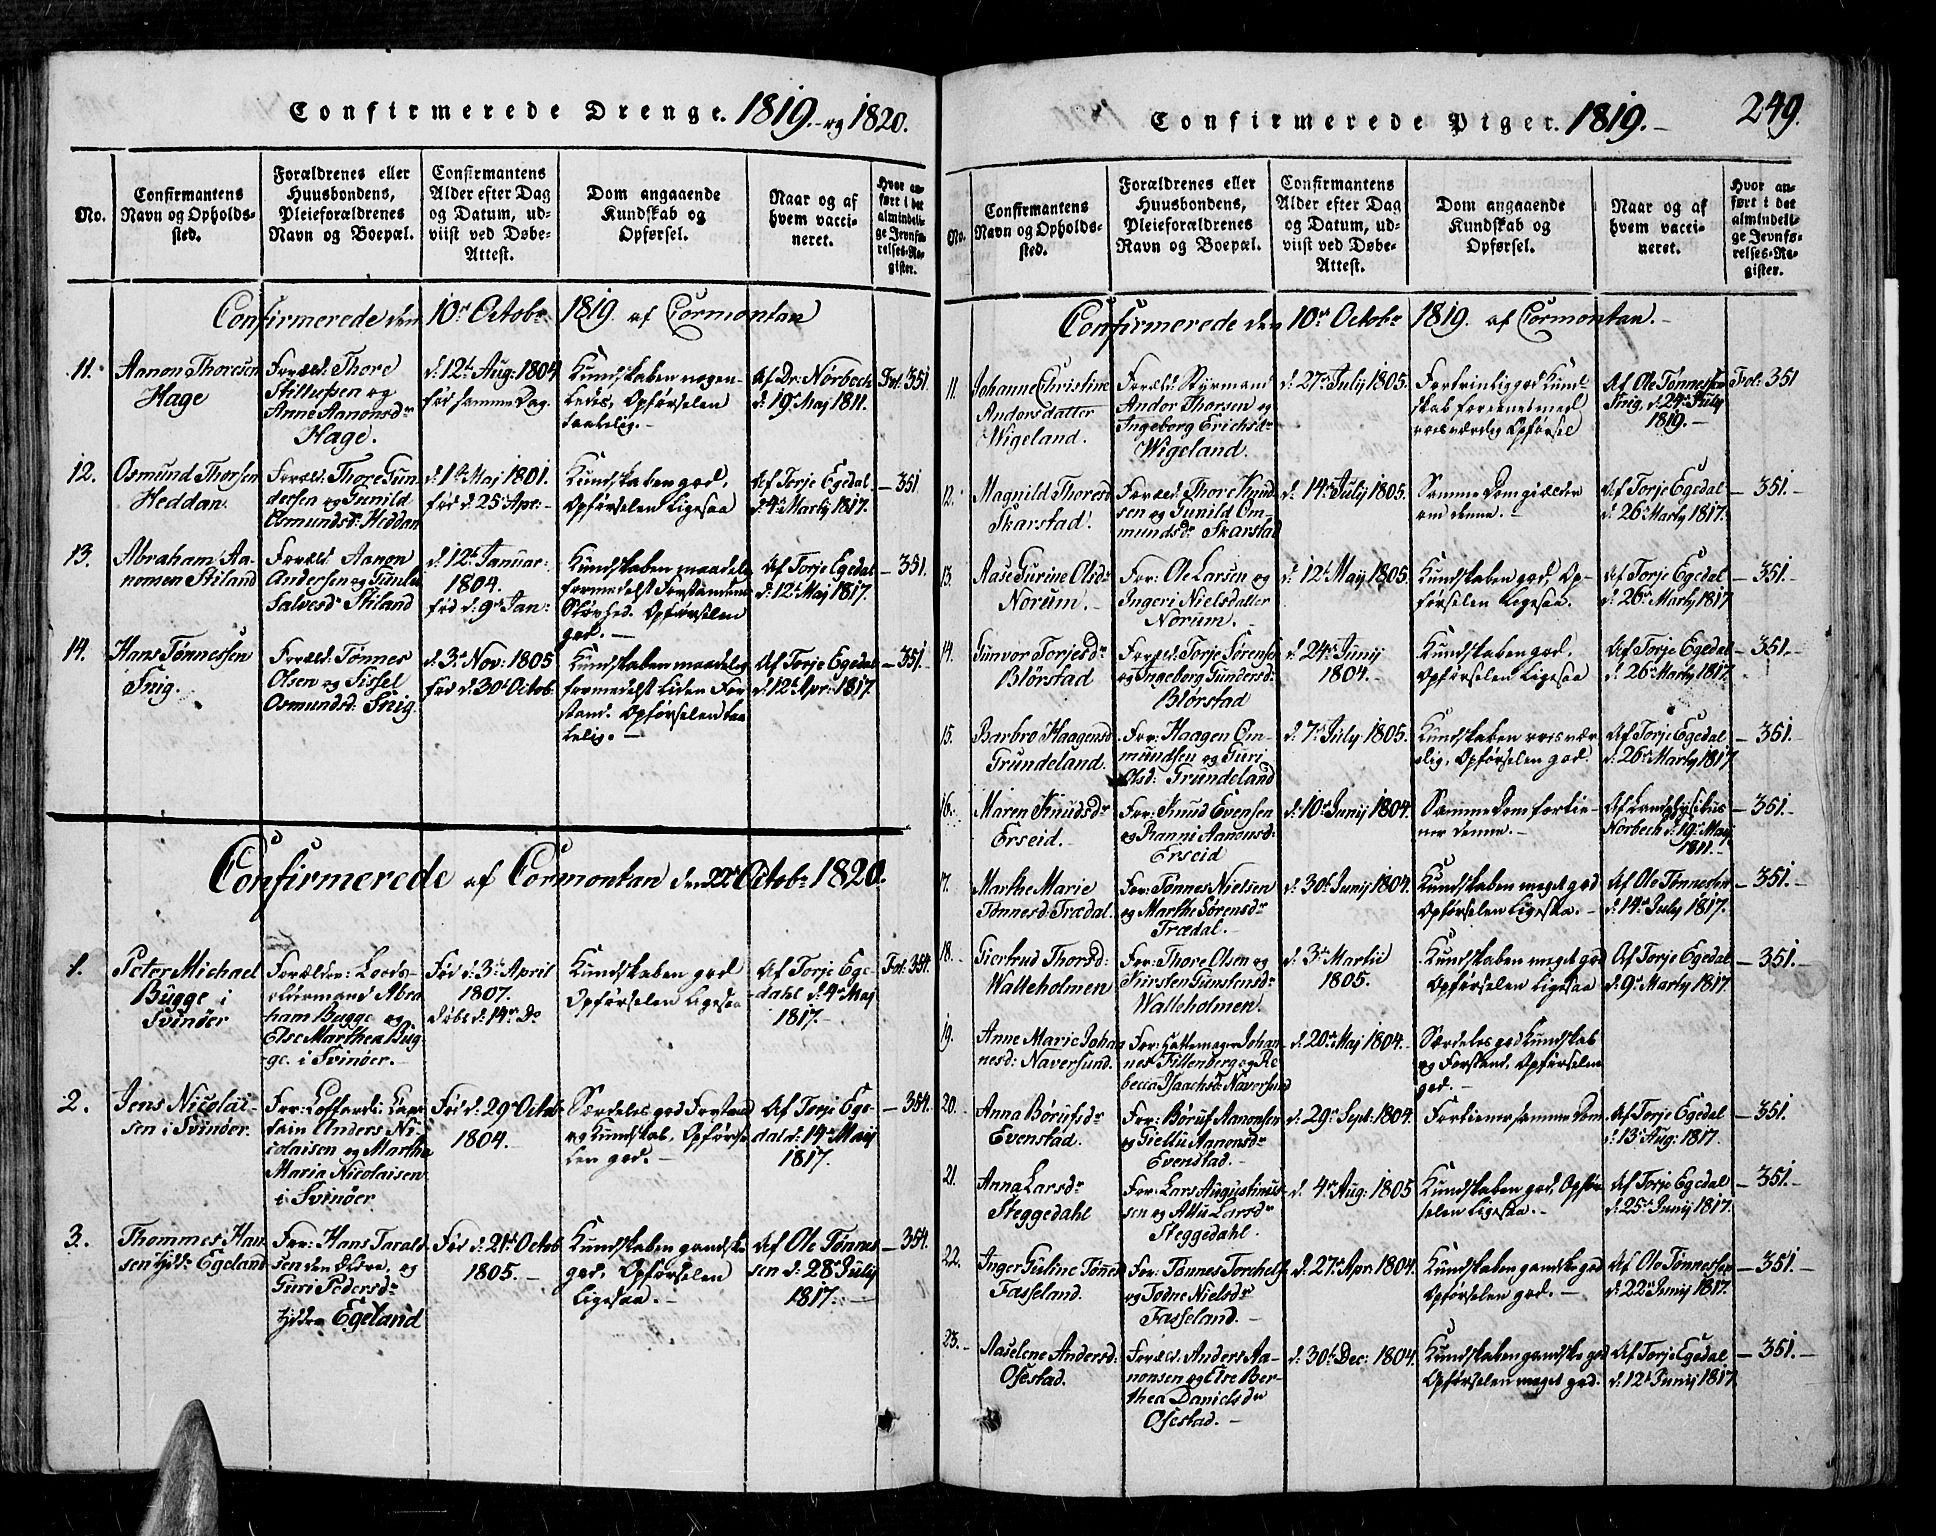 Confirmerede Drenge. 1819. og 1820.
No.
Confirmantens
Navn og Opholds-
sted.
Forældrenes eller
Huusbondens,
Pleieforældrenes
Navn og Boepæl.
Confirmantens
Alder efter Dag
og Datum, ud-
viist ved Døbe-
Attest.
Dom angaaende
Kundskab og
Opførsel.
Naar og af
hvem vacci-
neret.
Hvor an-
ført i det
almindeli-
ge Jevnfø-
relses-Re-
gister.
Confirmerede den 10de Octobr 1819. af Cormontan
11.
Aanon Thoresen
Hage
Foræld: Thore
Stillufsen og
Anne Aanonsdr
Hage.
d. 12te Aug: 1804
fød samme Dag.
Kundskaben nogen-
ledes, Opførselen
taalelig.
Af Dr: Nørbech
d. 19de Maj 1811.
Fol. 351.
12.
Osmund Thorsen
Heddan.
Foræld: Thore Gun
dersen og Gunild
Osmundsdr Heddan
d. 1ste Maj 1801.
fød d. 25de Apr:
Kundskaben god,
Opførselen Ligesaa
Af Torje Egedal
d. 4de Marty 1817.
— 351
13.
Abraham Aa-
nonsen Stiland
Foræld: Aanon
Andersen og Gunild
Salvesdr Stiland
d. 12te Januar:
1804.
fød d. 9de Jan:
Kundskaben maadelig
formedelst Forstandens
Sløvhed. Opførselen
god. —
Af Torje Egedal
d. 12te Maj 1817.
— 351.
14.
Hans Tønnessen
Snig.
Foræld: Tønnes
Olsen og Sissel
Osmundsd: Snig.
d. 3de Nov: 1805
fød d. 30te Octob.
Kundskaben maadelig
formedelst Liden For
stand. Opførselen taa
lelig. —
Af Torje Egedal
d. 12te Apr: 1817.
— 351.
Confirmerede af Cormontan den 22de Octobr 1820.
1.
Peter Michael
Bugge i
Svinøer
Forælder: Loods-
oldermand Abra
ham Bugge og
Else Marthea Bug
ge. i Svinøer.
Fød d. 3de April
1807.
Døbt d. 14de Do
Kundskaben god
Opførselen Ligesaa
Af Torje Ege-
dahl d. 4de Maj
1817.
Fol. 354.
2.
Jens Nicolai-
sen i Svinøer.
For: Coffardi: Cap
tain Anders Ni-
colaisen og Martha
Maria Nicolaisen
i Svinøer.
Fød d. 29de Octob
1804.
Særdeles god Forstand
og Kundskab, Opførse
len god. —
Af Torje Ege-
dal d. 14de Maij
1817.
— 354.
3.
Thommes Han
sen Egeland
For: Hans Tarald
sen den Ældre, og
Guri Pedersdr
Egeland
Fød d. 21de Octob
1805. —
Kundskaben gandske
god, Opførselen
Ligesaa. —
Af Ole Tønnes
sen d. 28de July
1817. —
— 354.
Confirmerede Piger. 1819. —
249.
No.
Confirmantens
Navn og Opholds-
sted.
Forældrenes eller
Huusbondens,
Pleieforældrenes
Navn og Boepæl.
Confirmantens
Alder efter Dag
og Datum, ud-
viist ved Døbe-
Attest.
Dom angaaende
Kundskab og
Opførsel.
Naar og af
hvem vacci-
neret.
Hvor an-
ført i det
almindeli-
ge Jevnfø-
relses-Re-
gister.
Confirmerede den 10de Octobr 1819. af Cormontan. —
11.
Johanne Christine
Andorsdatter
Wigeland.
Foræld: Styrmand
Andor Thorsen og
Ingeborg Erichsdr
Wigeland.
d. 27de July 1805.
Fortrinlig god Kund
skab forenet med
roesværdig Opførsel
Af Ole Tønnessen
Snig. d. 24de July
1819. —
Fol: 351
12.
Magnild Thoresd
Skarstad.
Foræld: Thore Knud
sen og Gunild Om-
mundsdr Skarstad
d. 14de July 1805.
Samme Dom gielder
om denne. —
Af Torje Egedal
d. 26de Marty 1817.
— 351.
13.
Aase Gurine Olsdr
Norum. —
For: Ole Larsen og
Ingeri Nielsdatter
Norum. —
d. 12te Maij 1805.
Kundskaben god, Op-
førselen Ligesaa.
Af Torje Egedal
d. 26de Marty 1817
— 351.
14.
Gunvor Torjesdr
Blørstad
Foræld: Torje Sørensen
og Ingeborg Gundersdr
Blørstad
d. 24de Junij
1804.
Kundskaben god,
Opførselen Ligesaa
Af Torje Egedal
d. 26de Marty 1817.
— 351.
15.
Barbro Haagensd
Grundeland.
For: Haagen Om-
mundsen og Guri
Olsd: Grundeland
d. 7de July 1805.
Kundskaben roesvær
dig, Opførselen god.
Af Torje Egedal
d. 26de Marty 1817
— 351.
16.
Maren Knudsdr
Erseid.
For: Knud Evensen
og Ranni Aanonsd:
Erseid
d. 10de Junij 1804.
Samme Dom fortie-
ner denne. —
Af Landphysikus
Nørbech d. 19de Maij
1811. —
— 351.
17.
Marthe Marie
Tønnesd: Trædal.
For: Tønnes Nielsen
og Marthe Sørensdr
Trædal. —
d. 30te Junij 1804.
Kundskaben meget god
Opførselen Ligesaa. —
Af Ole Tønnessen
d. 14de July 1817.
— 351.
18.
Giertrud Thorsd:
Walleholmen
For: Thore Olsen og
Kirsten Gunstensdr
Walleholmen.
d. 3de Martii
1805.
Kundskaben meget god
Opførselen Ligesaa
Af Torje Egedal
d. 9de Marty 1817.
— 351.
19.
Anne Marie Johan
nesd: Naversund.
For: Hattemager Johan-
nes Fillenberg og Re
becca Isaachsd: Naversund
d. 20de Maj 1804. —
Særdeles god Kundskab
og Forstand, Opførselen
god. —
20.
Anna Børufsdr
Evenstad.
For: Børuf Aanonsen
og Giellu Aanonsdr
Evenstad. —
d. 29de Sept: 1804.
Fortiener samme Dom
Af Torje Egedal
d. 13de Aug: 1817.
— 351.
21.
Anna Larsdr
Steggedahl
For: Lars Augustinus
sen og Attu Larsdr
Steggedahl.
d. 4de Aug: 1805
Kundskaben god, Opfør
selen Ligesaa. —
Af Torje Egedal
d. 25de Junij 1817.
— 351. —
22.
Inger Guline Tønnesd
Fasseland.
For: Tønnes Torchels
og Todne Nielsdr
Fasseland. —
d. 27de Apr: 1804.
Kundskaben gandske god
Opførselen god. —
Af Ole Tønnessen
d. 22de Junij 1817.
— 351. —
23.
Aaselene Andersd:
Osestad.
Foræld: Anders Aa-
nonsen og Else Ber-
thea Danielsdr
Osestad. —
d. 30te Dec: 1804.
Kundskaben gandske god
Opførselen meget god.
Af Torje Egedal
d. 12te Junij 1817
— 351. —